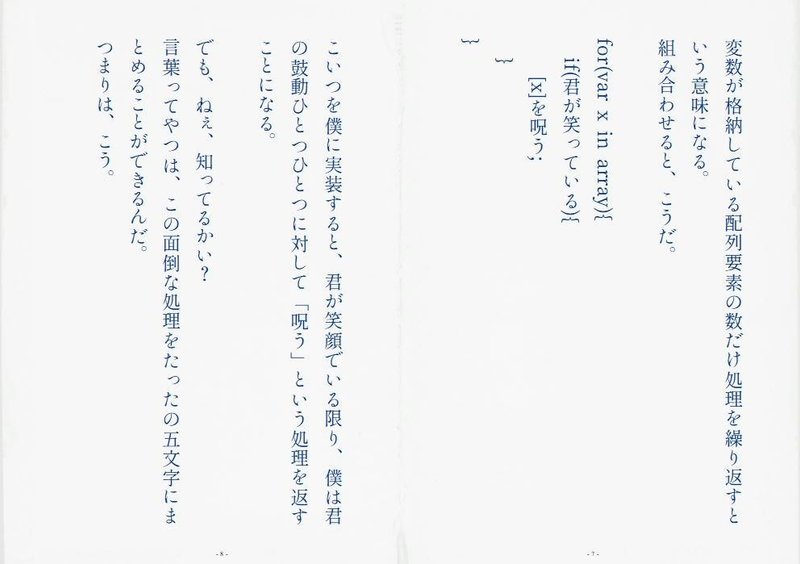 変数が格納している配列要素の数だけ処理を繰り返すと
いう意味になる。
組み合わせると、こうだ。
for(var x in array){
if(君が笑っている){
[x]を呪う;
}
}
-7-
こいつを僕に実装すると、君が笑顔でいる限り、僕は君
の鼓動ひとつひとつに対して「呪う」という処理を返す
ことになる。
でも、ねぇ、知ってるかい？
言葉ってやつは、この面倒な処理をたったの五文字にま
とめることができるんだ。
つまりは、こう。
-8-